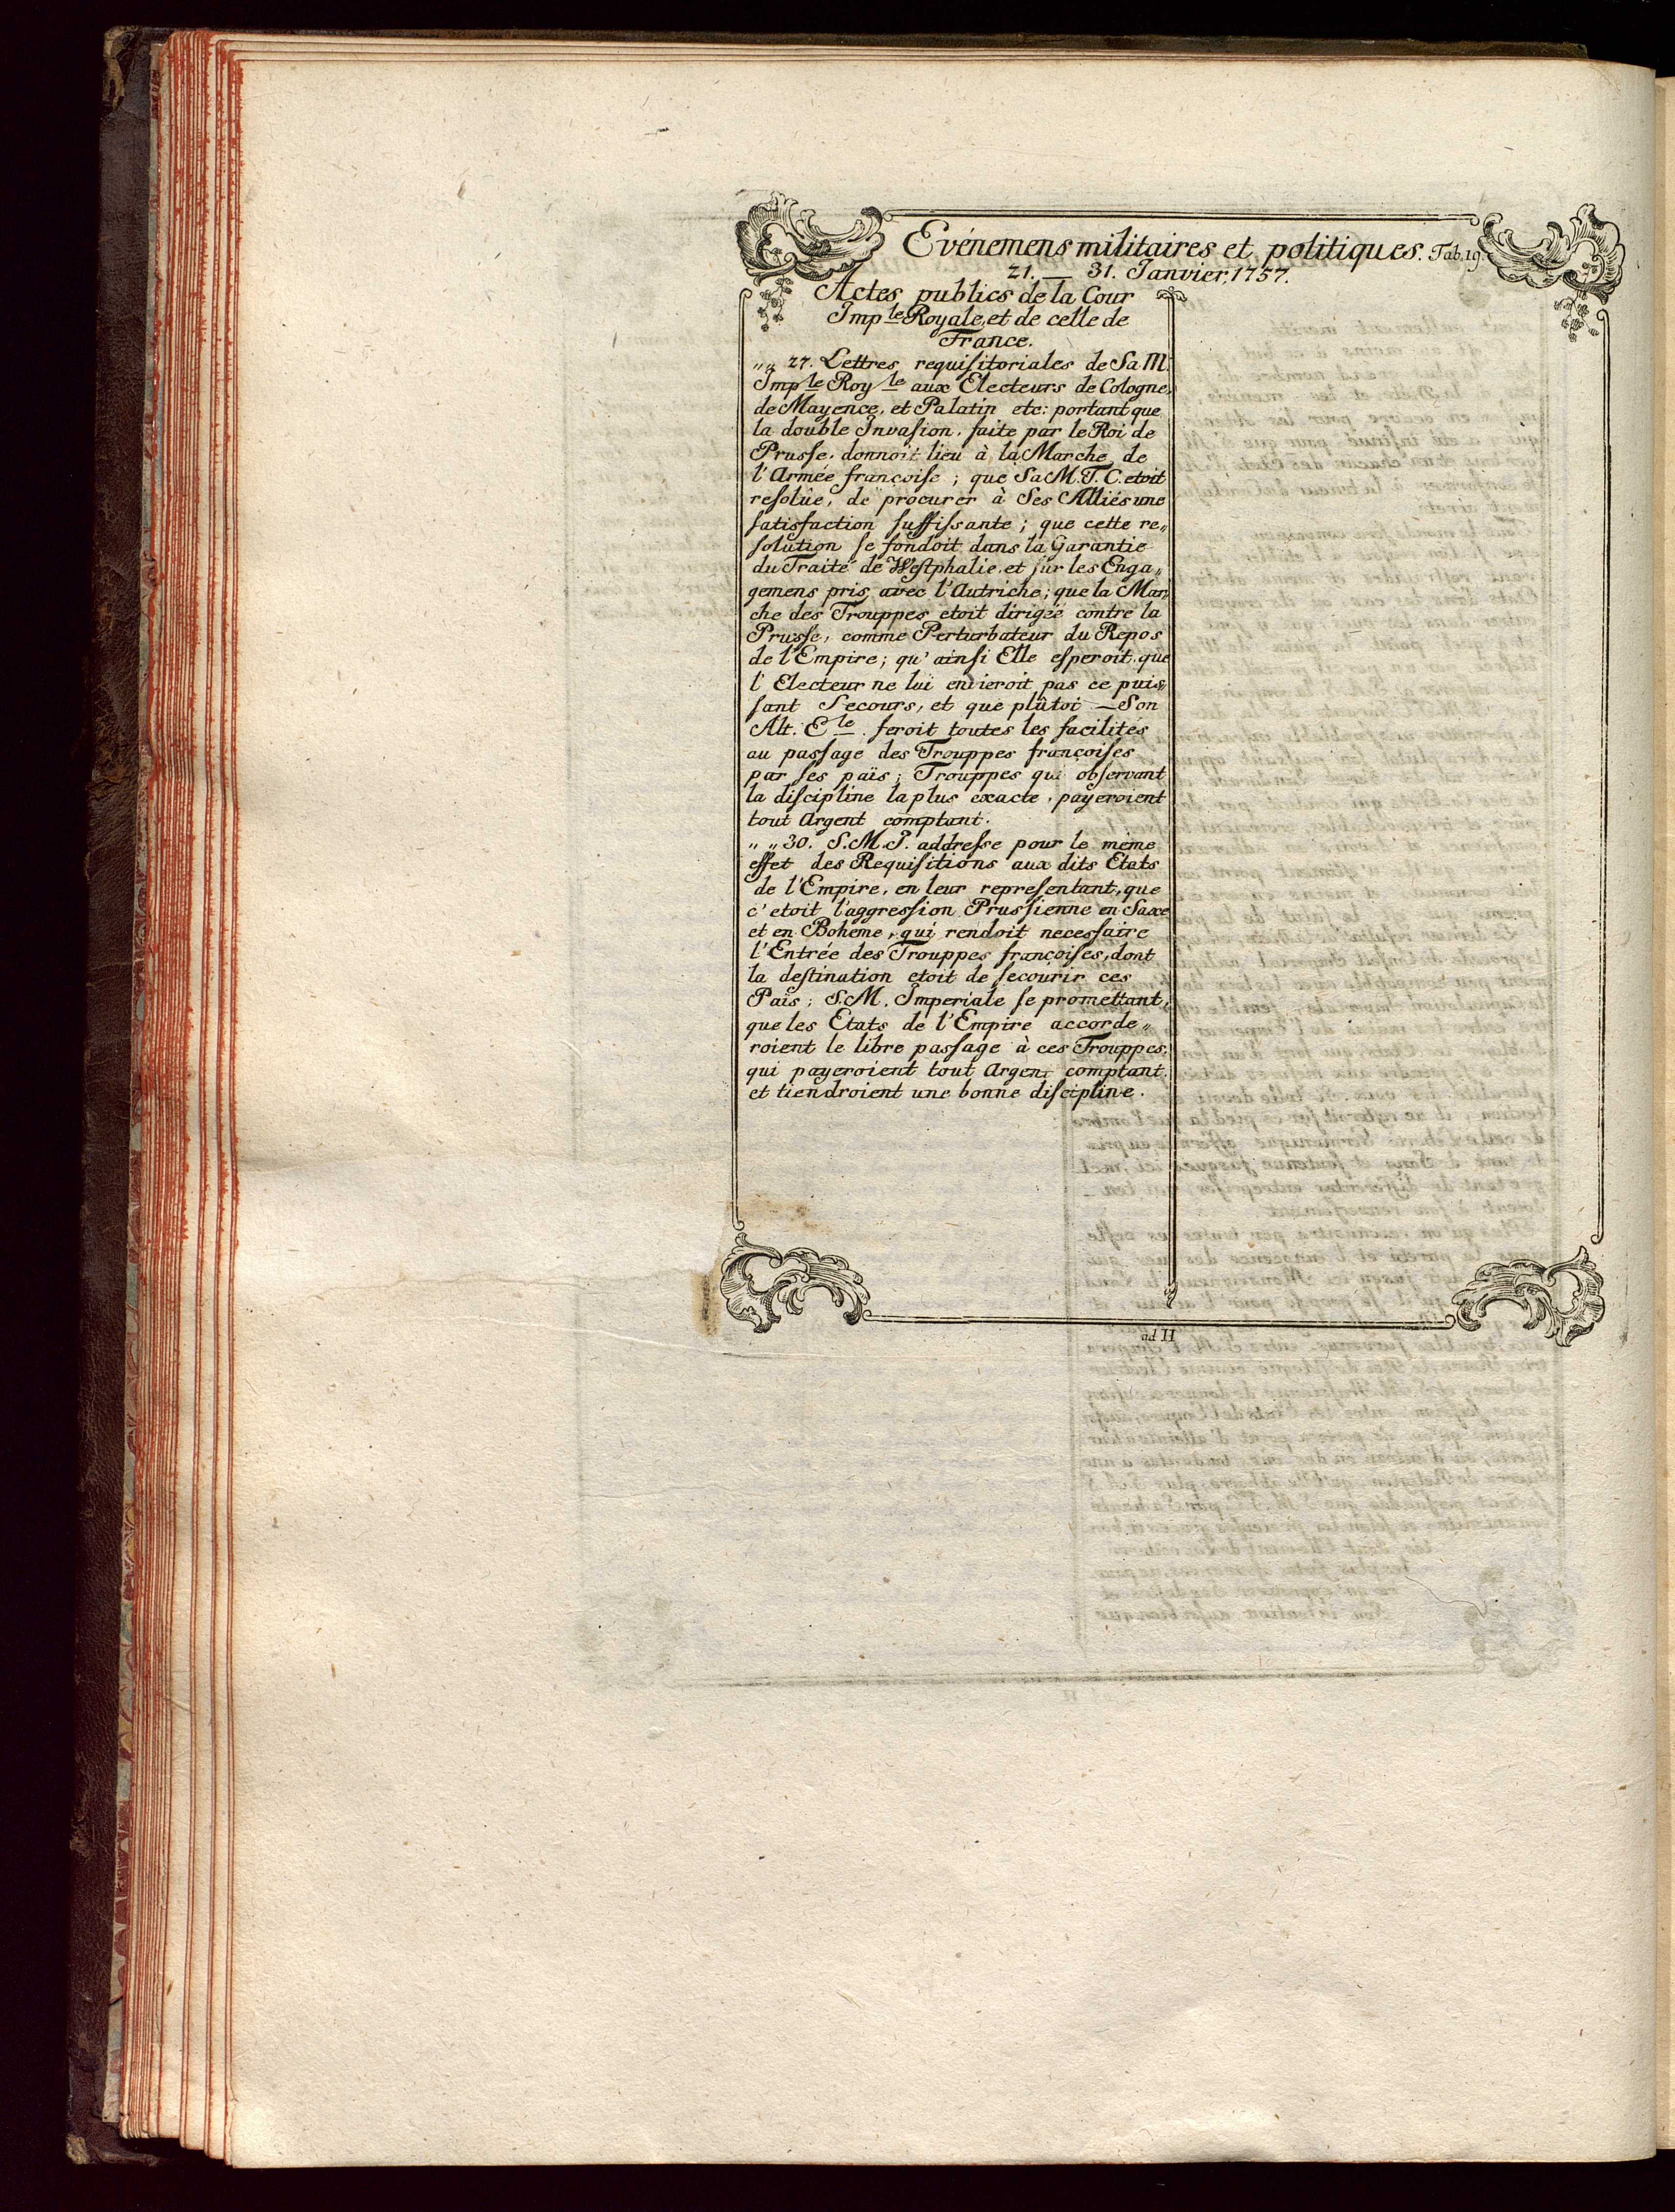 Evénemens militaires et politiques. Tab. 19.
21. — 31. Janvier, 1757.
Actes publics de la Cour
Imp le Royale, et de celle de
France.
„ „ 27. Lettres requisitoriales de Sa M.
Imp le Roy le aux Electeurs de Cologne,
de Mayence, et Palatin etc: portant que
la double Invasion, faite par le Roi de
Prusse, donnoit lieu à la Marche de
l'Armée françoise; que Sa M. T. C. etoit
resolûe, de procurer à Ses Alliés une
satisfaction suffissante; que cette re„
solution se fondoit dans la Garantie
du Traité de Westphalie, et sur les Enga„
gemens pris avec l'Autriche; que la Mar„
che des Trouppes etoit dirigée contre la
Prusse, comme Perturbateur du Repos
de l'Empire; qu'ainsi Elle esperoit, que
l'Electeur ne lui envieroit pas ce puis„
sant Secours, et que plûtot — Son
Alt. E le. feroit toutes les facilités
au passage des Trouppes françoises
par ses païs; Trouppes qui observant
la discipline la plus exacte, payeroient
tout Argent comptant.
„ „ 30. S. M. I. addresse pour le même
effet des Requisitions aux dits Etats
de l'Empire, en leur representant, que
c'etoit l'aggression Prussienne en Saxe
et en Bohême, qui rendoit necessaire
l'Entrée des Trouppes françoises, dont
la destination etoit de secourir ces
Païs; S. M. Imperiale se promettant,
que les Etats de l'Empire accorde„
roient le libre passage à ces Trouppes,
qui payeroient tout Argent comptant,
et tiendroient une bonne discipline.